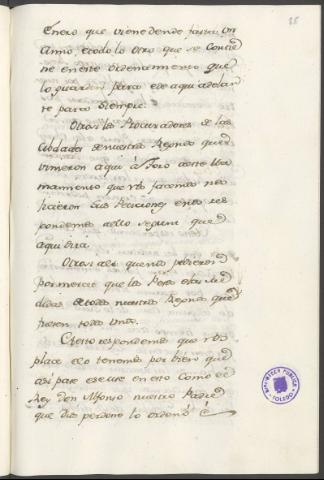 Enero que viene dende fasta un
Anno, e todo lo otro que se contie
ne en este ordenamiento que
lo guarden para de aqui adelan
te para siempre.
Otrosi los Procuradores de las
Cibdades de nuestros Regnos que
vinieron aqui à Toro a este lla
mamiento que nos facemos nos
ficieron sus Peticiones e nos res
pondemos a ello segunt que
aqui dirá.
Otrosi a lo que nos pidieron
por merced que los Pesos e las me
didas de todos nuestros Regnos que
fuesen todos unos.
A esto respondemos que nos
place e lo tenemos por bien que
asi pase segunt en esto como el
Rey don Alfonso nuestro Padre
que Dios perdone lo ordenó
BIBLIOTECA PUBLICA
TOLEDO